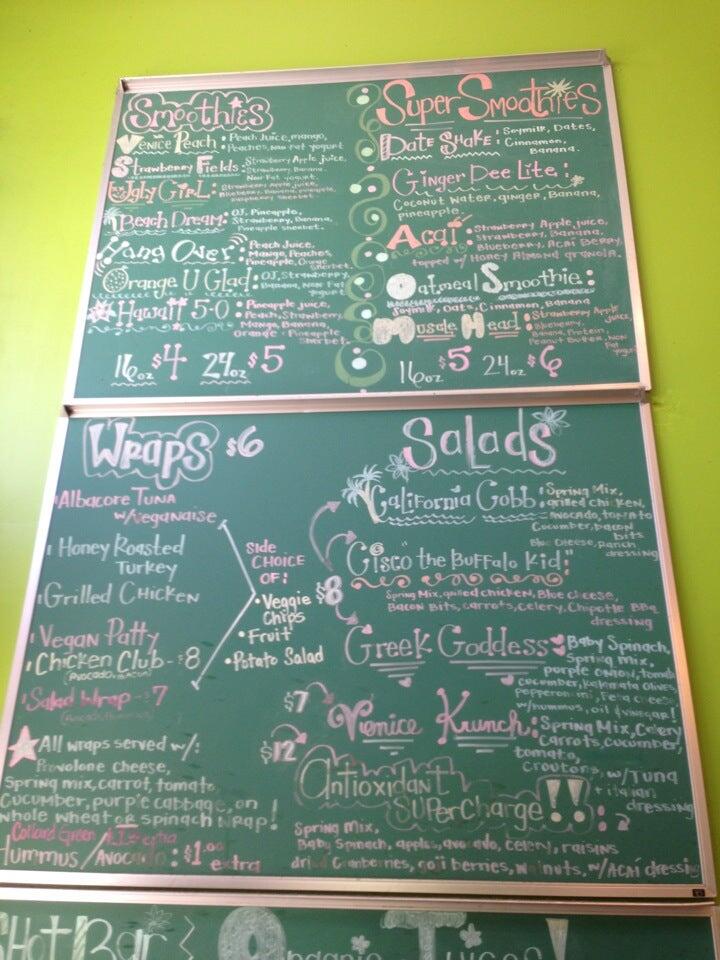 Smoothies
Venice Peach: Peach Juice, mango,
Peaches, Non Fat yogurt
Strawberry Fields: Strawberry Apple juice,
Strawberry, Banana,
Non Fat yogurt.
Ugly Girl: Strawberry Apple juice,
Blueberry, Banana, pineapple,
Raspberry Sherbet.
Beach Dream: OJ, Pineapple,
Strawberry, Banana,
Pineapple sherbet.
Yang Over: Peach Juice,
Mango, Peaches,
Pineapple, Orange
Sherbet.
Orange U Glad: OJ, Strawberry,
Banana, Non Fat
yogurt.
Hawaii 5-0: Pineapple juice,
Peach, Strawberry,
Mango, Banana,
Orange + Pineapple
Sherbet.
16oz $4 24oz $5
Super Smoothies
Date Shake: Soymilk, Dates,
Cinnamon,
Banana.
Ginger Dee Lite:
Coconut Water, ginger, Banana,
pineapple.
Acai: Strawberry Apple juice,
Strawberry, Banana,
Blueberry, Acai Berry,
topped w/ Honey Almond granola.
Oatmeal Smoothie:
Soymilk, Oats, Cinnamon, Banana
Muscle Head: Strawberry Apple
Blueberry,
Banana, Protein,
Peanut Butter, Non
Fat
yogurt
16oz $5 24oz $6
Wraps $6
Albacore Tuna
w/veganaise
Honey Roasted
Turkey
Grilled Chicken
Vegan Patty
Chicken Club - $8
(Avocado
Salad Wrap - $7
Side
Choice
of:
• Veggie
Chips
• Fruit
• Potato Salad
All wraps served w/:
Provolone cheese,
Spring mix, carrot, tomato,
Cucumber, purple cabbage, on
whole wheat or spinach wrap!
Collard Green extra
Hummus/Avocado: $1.00
extra
Salads
California Cobb: Spring Mix,
grilled chicken,
avocado, tomato
Cucumber, bacon
bits
Blue Cheese, Ranch
dressing
$8
Cisco "the Buffalo Kid":
Spring Mix, grilled chicken, Blue cheese,
Bacon Bits, carrots, Celery, Chipotle BBQ
dressing
Greek Goddess: Baby Spinach,
Spring mix,
purple onion, tomato
cucumber, kalamata olives,
pepperoncini, Feta cheese
w/hummus, oil & vinegar!
$7
Venice Krunch: Spring Mix, Celery
Carrots, cucumber,
tomato,
croutons, w/Tuna
+ italian
dressing
$12
Antioxidant
Supercharge!!:
Spring Mix,
Baby Spinach, apples, avocado, celery, raisins
dried Cranberries, goji berries, walnuts, w/Acaí dressing
Shot Bar Organic Juices!